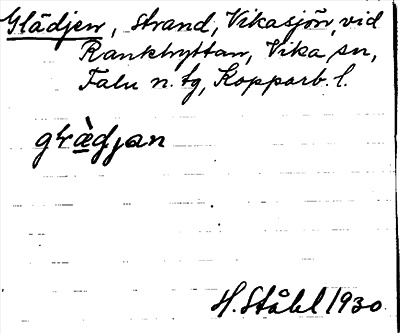 Glädjen, strand, Vikasjön, vid
Rankhyttan, Vika sn,
Falu n. tg, Kopparb. l.
glä̀djan
H. Ståhl 1930